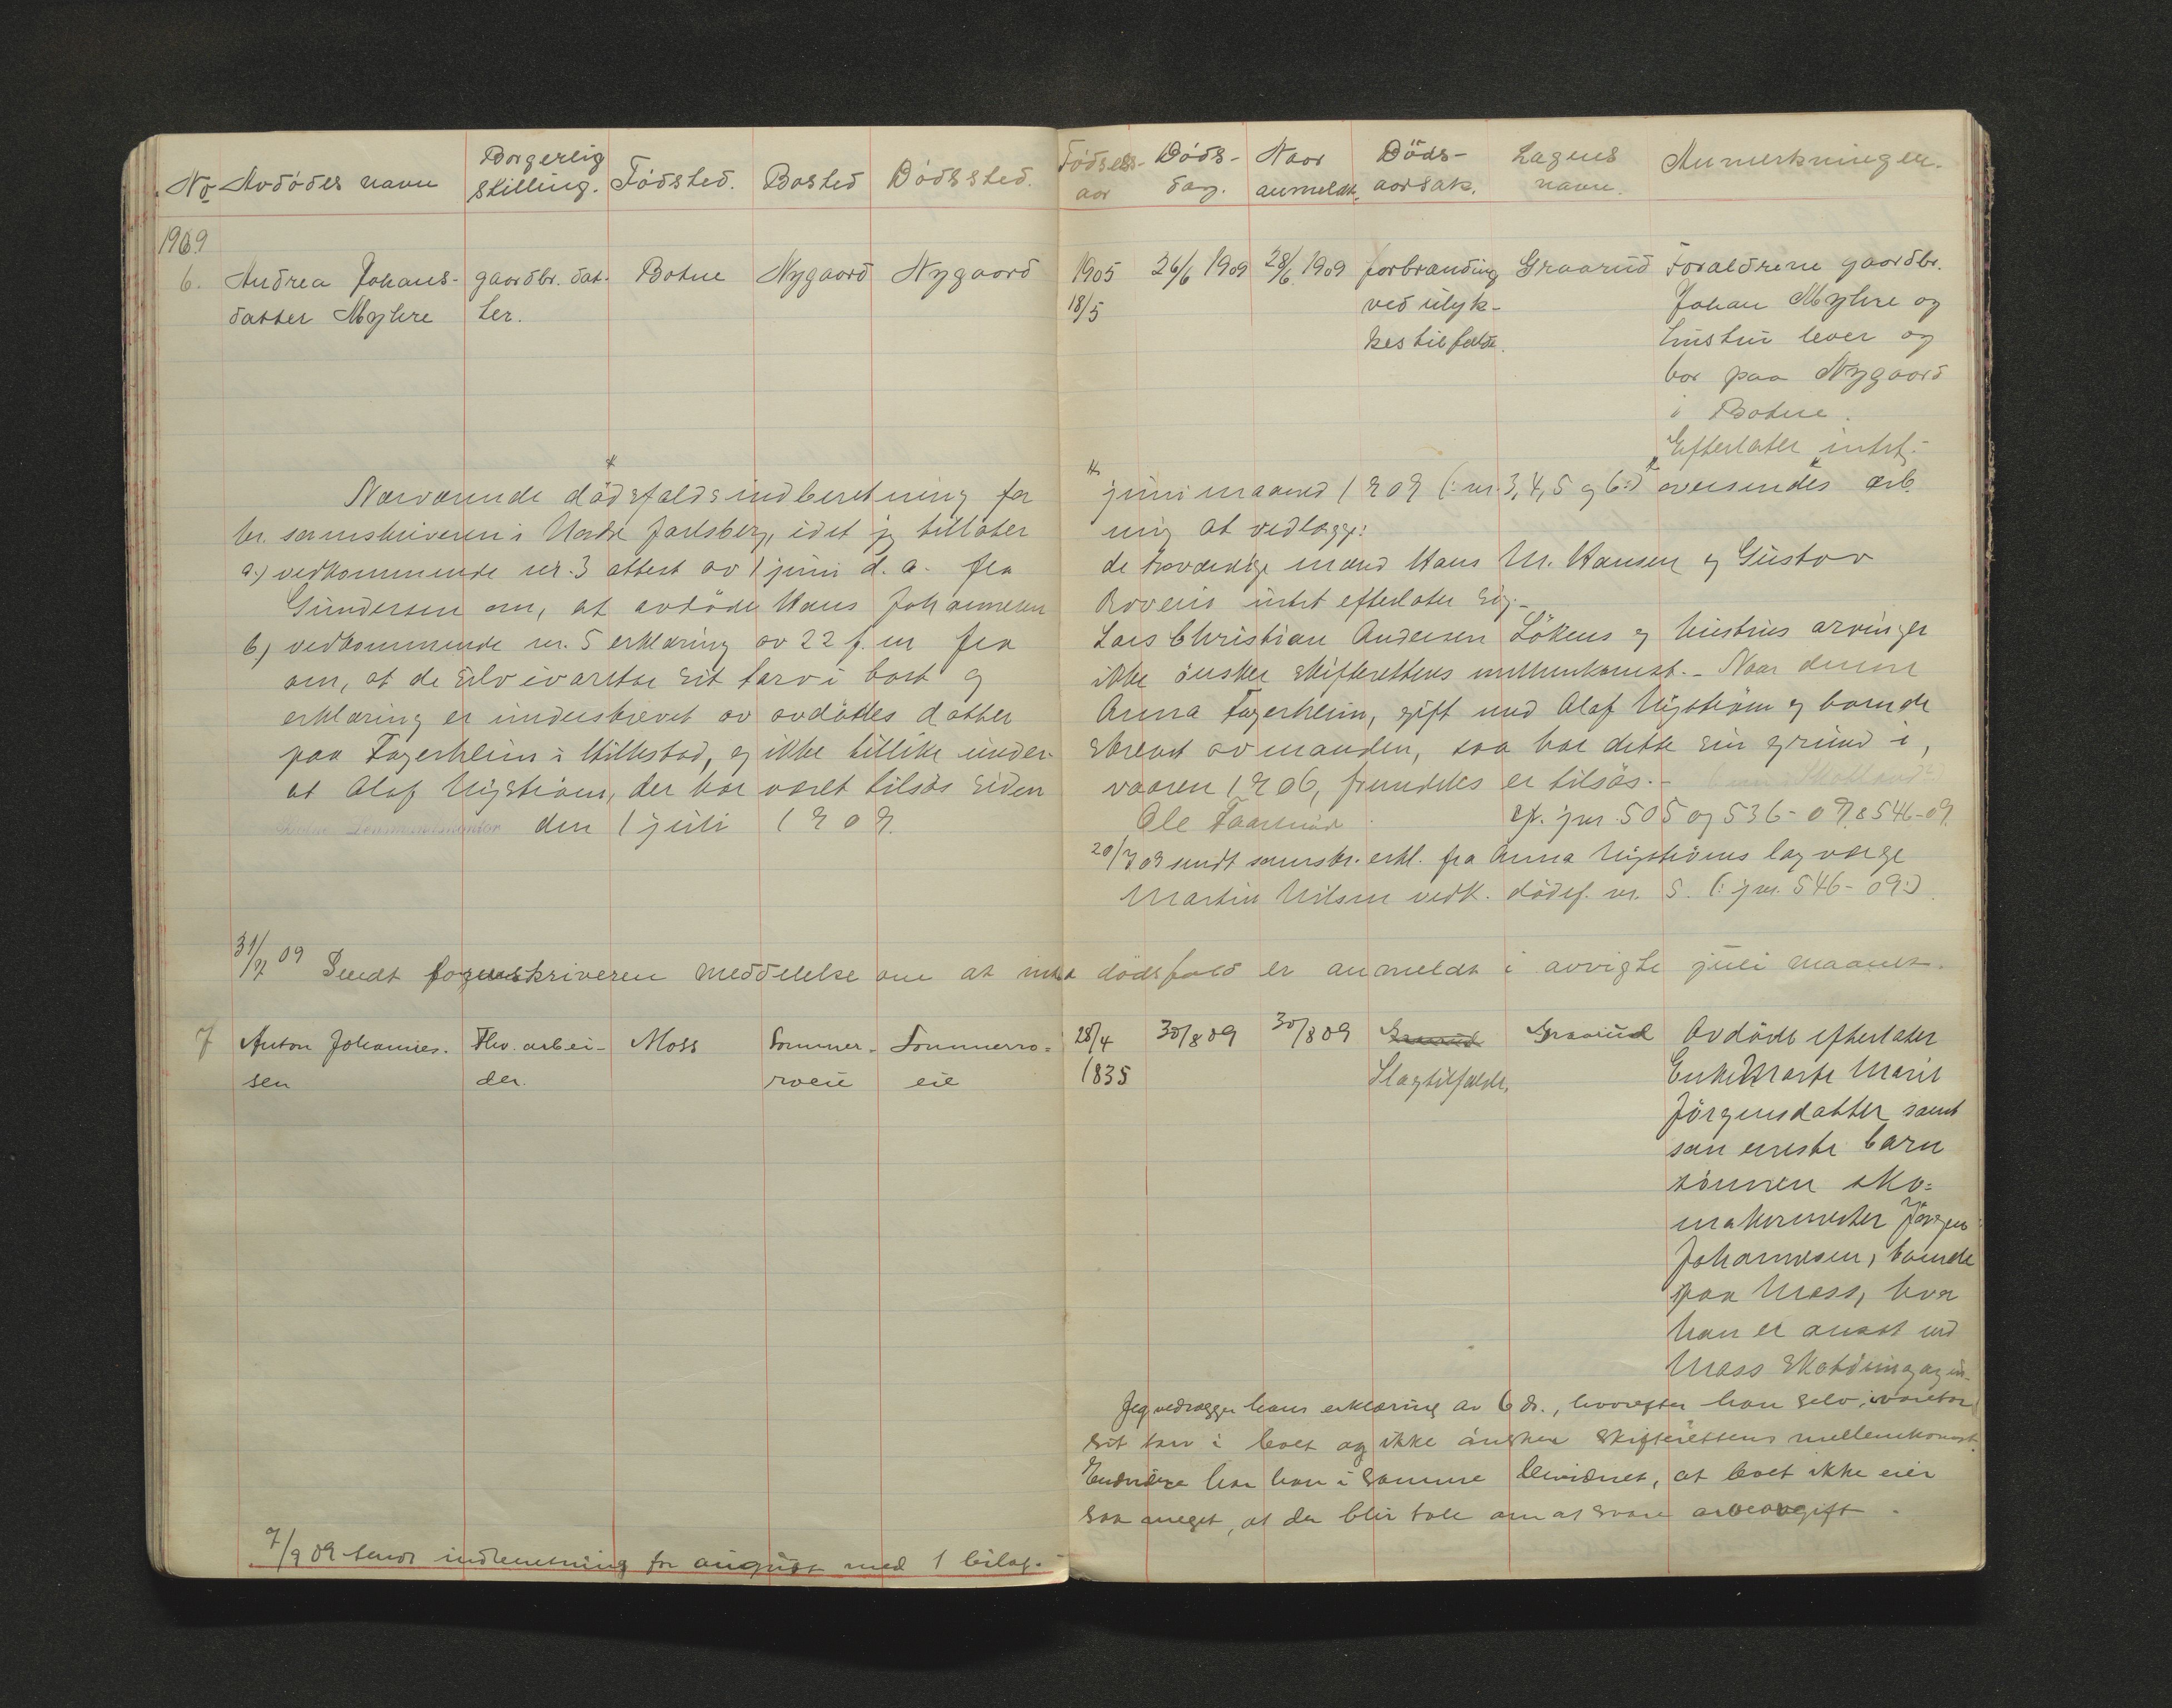 No Avdødes navn Borgerlig stilling. Fødsted. Bosted Dødssted. Fødsels-aar Døds-dag. Naar anmeldt. Døds-aarsak. Lægens navn. Anmerkninger.
1909
6. Andrea Johans- gaardbr. dat- Botne Nygaard Nygaard 1905 26/6 1909 28/6 1909 forbrænding Graarud Forældrene gaardbr.
datter Myhre ter. 18/5 ved ulyk- Johan Myhre og
kestilfælde. hustru lever og
bor paa Nygaard
i Botne.
Efterlater intet.
Nærværende dødsfaldsindberetning for juni maaned 1909 (: nr. 3, 4, 5 og 6 :) oversendes ærb.
hr. sorenskriveren i Nordre Jarlsberg, idet jeg tillater mig at vedlægge:
a.) vedkommende nr. 3 attest av 1 juni d. a. fra de troværdige mænd Hans M. Hansen og Gustav
Gundersen om, at avdøde Hans Johannesen Roveiø intet efterlater sig.-
b) vedkommende nr. 5 erklæring av 22 f. m fra Lars Christian Andersen Løkens og hustrus arvinger
om, at de selv ivaretar sit tarv i boet og ikke ønsker skifterettens mellemkomst. - Naar denne
erklæring er underskrevet av avdødes datter Anna Fagerheim, gift med Olaf Nyström og boende
paa Fagerheim i Hillestad, og ikke tillike under- skrevet av manden, saa har dette sin grund i,
at Olaf Nyström, der har været tilsøs siden vaaren 1906, fremdeles er tilsøs.-
den 1 juli 1909. Ole Faarerud
cf. jnr. 505 og 536-09. & 546-09.
20/7 09 sendt sorenskr. erkl. fra Anna Nyströms lagværge
Martin Nilsen vedk. dødsf. nr. 5. (: jnr. 546-09 :)
31/7 09 Sendt sorenskriveren meddelelse om at intet dødsfald er anmeldt i avvigte juli maaned.
7 Anton Johannes- Fhv. arbei- Moss Sommer- Sommerro- 28/4 30/8 09 30/8 09 Graarud Graarud Avdøde efterlater
sen der. roeie eie 1835 Slagtilfælde. Enke Marte Marie
Jørgensdatter samt
som eneste barn
sønnen sko-
makermester Jørgen
Johannesen, boende
paa Moss, hvor
han er ansat ved
Moss Skotøimagasin.
Jeg vedlægger hans erklæring av 6 ds., hvorefter han selv ivaretar
sit tarv i boet og ikke ønsker skifterettens mellemkomst.
Endvidere har han i samme bevidnet, at boet ikke eier
saa meget, at der blir tale om at svare arveavgift.
7/9 09 sendt indberetning for august med 1 bilag.